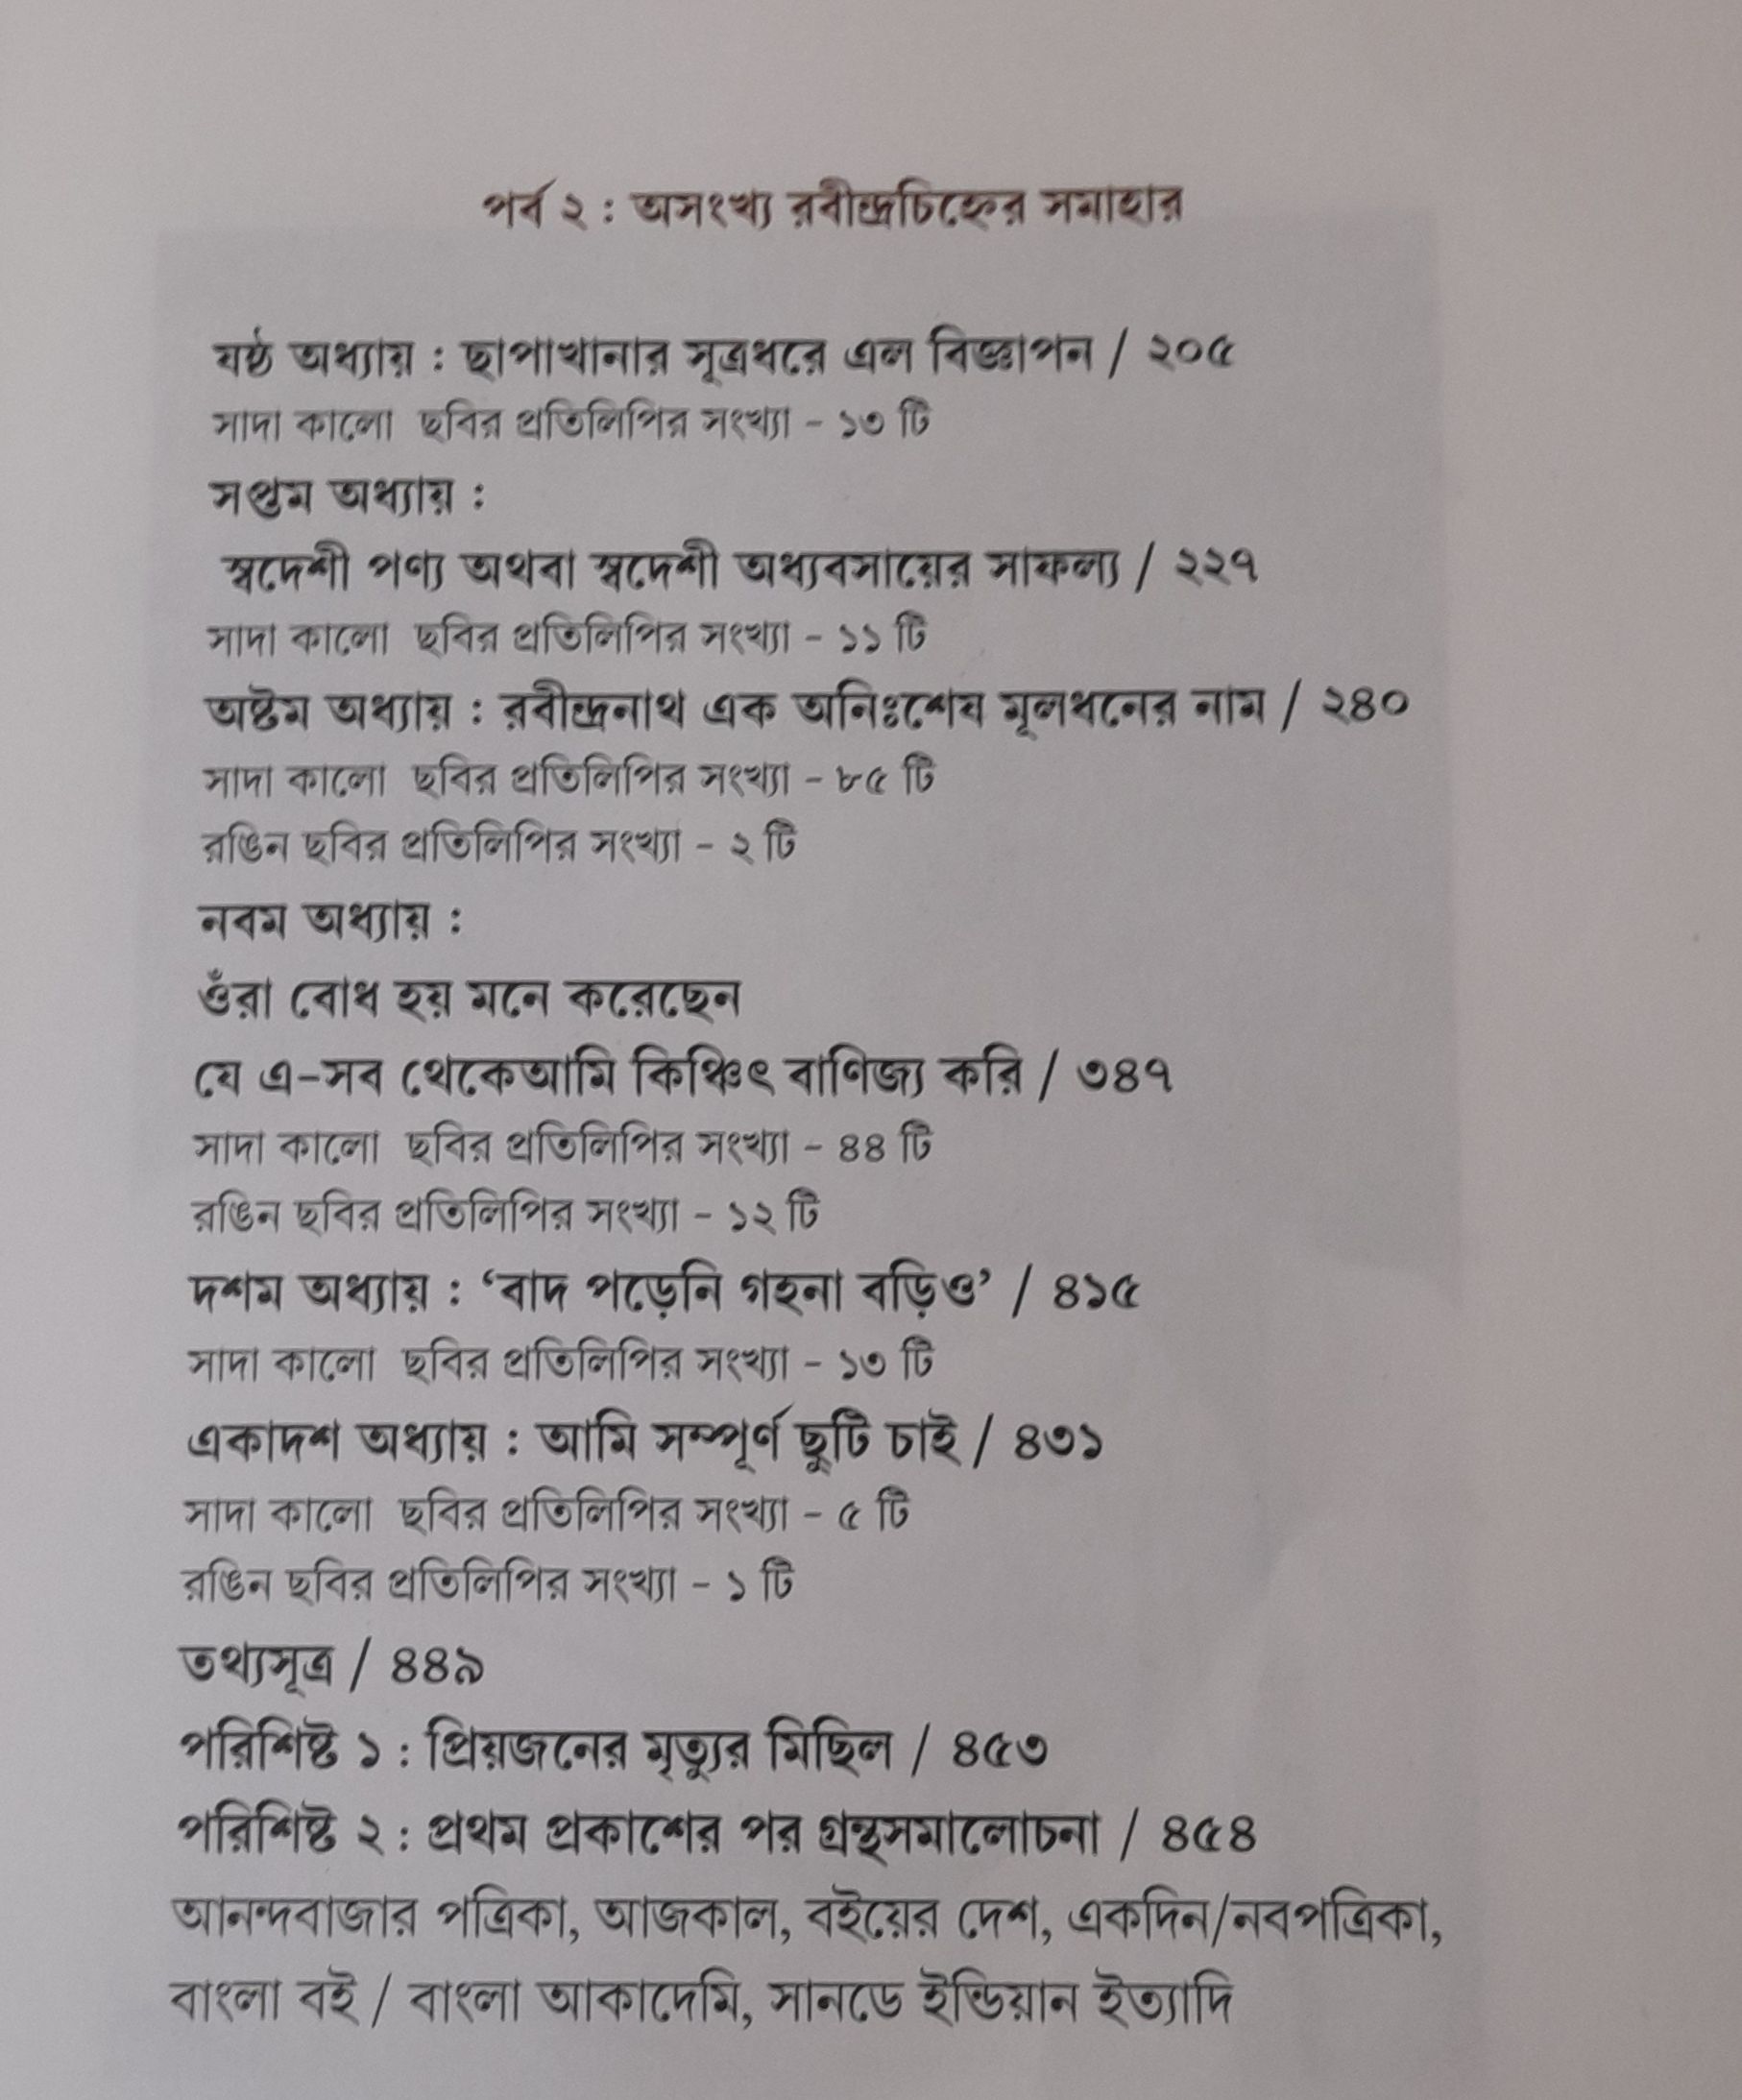 পর্ব ২ : অসংখ্য রবীন্দ্রচিহ্নের সমাহার
ষষ্ঠ অধ্যায় : ছাপাখানার সূত্রধরে এল বিজ্ঞাপন / ২০৫
সাদা কালো ছবির প্রতিলিপির সংখ্যা – ১৩ টি
সপ্তম অধ্যায় :
স্বদেশী পণ্য অথবা স্বদেশী অধ্যবসায়ের সাফল্য / ২২৭
সাদা কালো ছবির প্রতিলিপির সংখ্যা – ১১ টি
অষ্টম অধ্যায় : রবীন্দ্রনাথ এক অনিঃশেষ মূলধনের নাম / ২৪০
সাদা কালো ছবির প্রতিলিপির সংখ্যা – ৮৫ টি
রঙিন ছবির প্রতিলিপির সংখ্যা – ২ টি
নবম অধ্যায় :
ওঁরা বোধ হয় মনে করেছেন
যে এ-সব থেকেআমি কিঞ্চিৎ বাণিজ্য করি / ৩৪৭
সাদা কালো ছবির প্রতিলিপির সংখ্যা – ৪৪ টি
রঙিন ছবির প্রতিলিপির সংখ্যা – ১২ টি
দশম অধ্যায় : ‘বাদ পড়েনি গহনা বড়িও’ / ৪১৫
সাদা কালো ছবির প্রতিলিপির সংখ্যা – ১৩ টি
একাদশ অধ্যায় : আমি সম্পূর্ণ ছুটি চাই / ৪৩১
সাদা কালো ছবির প্রতিলিপির সংখ্যা – ৫ টি
রঙিন ছবির প্রতিলিপির সংখ্যা – ১ টি
তথ্যসূত্র / ৪৪৯
পরিশিষ্ট ১ : প্রিয়জনের মৃত্যুর মিছিল / ৪৫৩
পরিশিষ্ট ২ : প্রথম প্রকাশের পর গ্রন্থসমালোচনা / ৪৫৪
আনন্দবাজার পত্রিকা, আজকাল, বইয়ের দেশ, একদিন/নবপত্রিকা,
বাংলা বই / বাংলা আকাদেমি, সানডে ইন্ডিয়ান ইত্যাদি